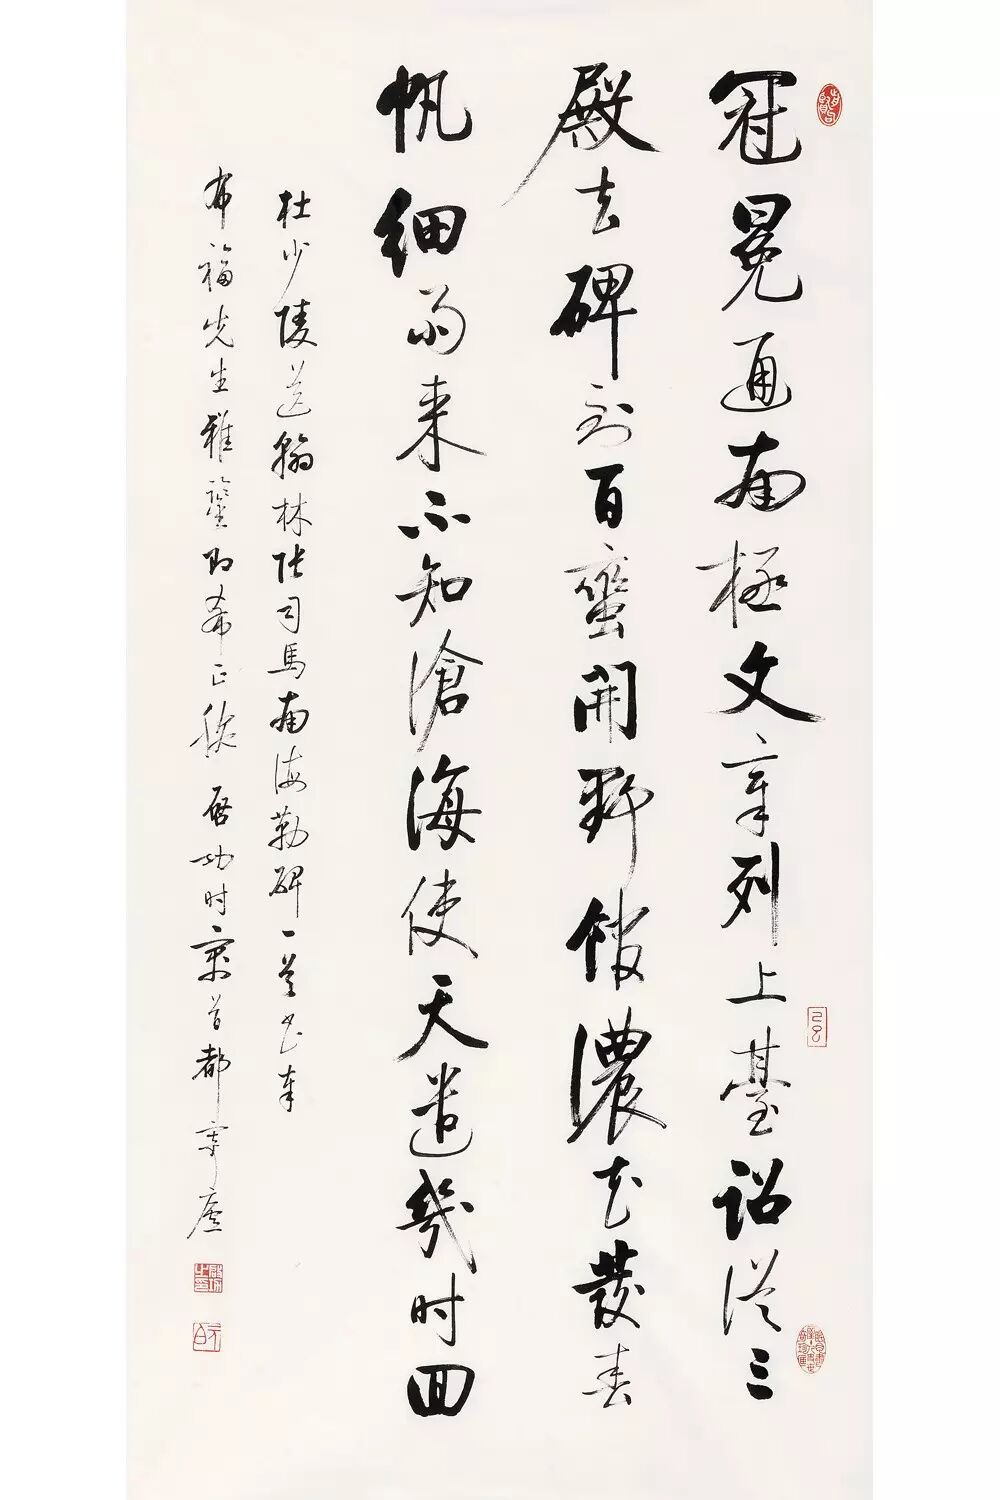 冠冕通南極文章列上臺詔從三
殿去碑到百蠻開野館濃花發春
帆細雨来不知滄海使天遣幾時回
杜少陵送翰林張司馬南海勒碑一首書奉
布福先生雅鑒即希正腕啓功时寓首都寄廬
啟功之印
元白